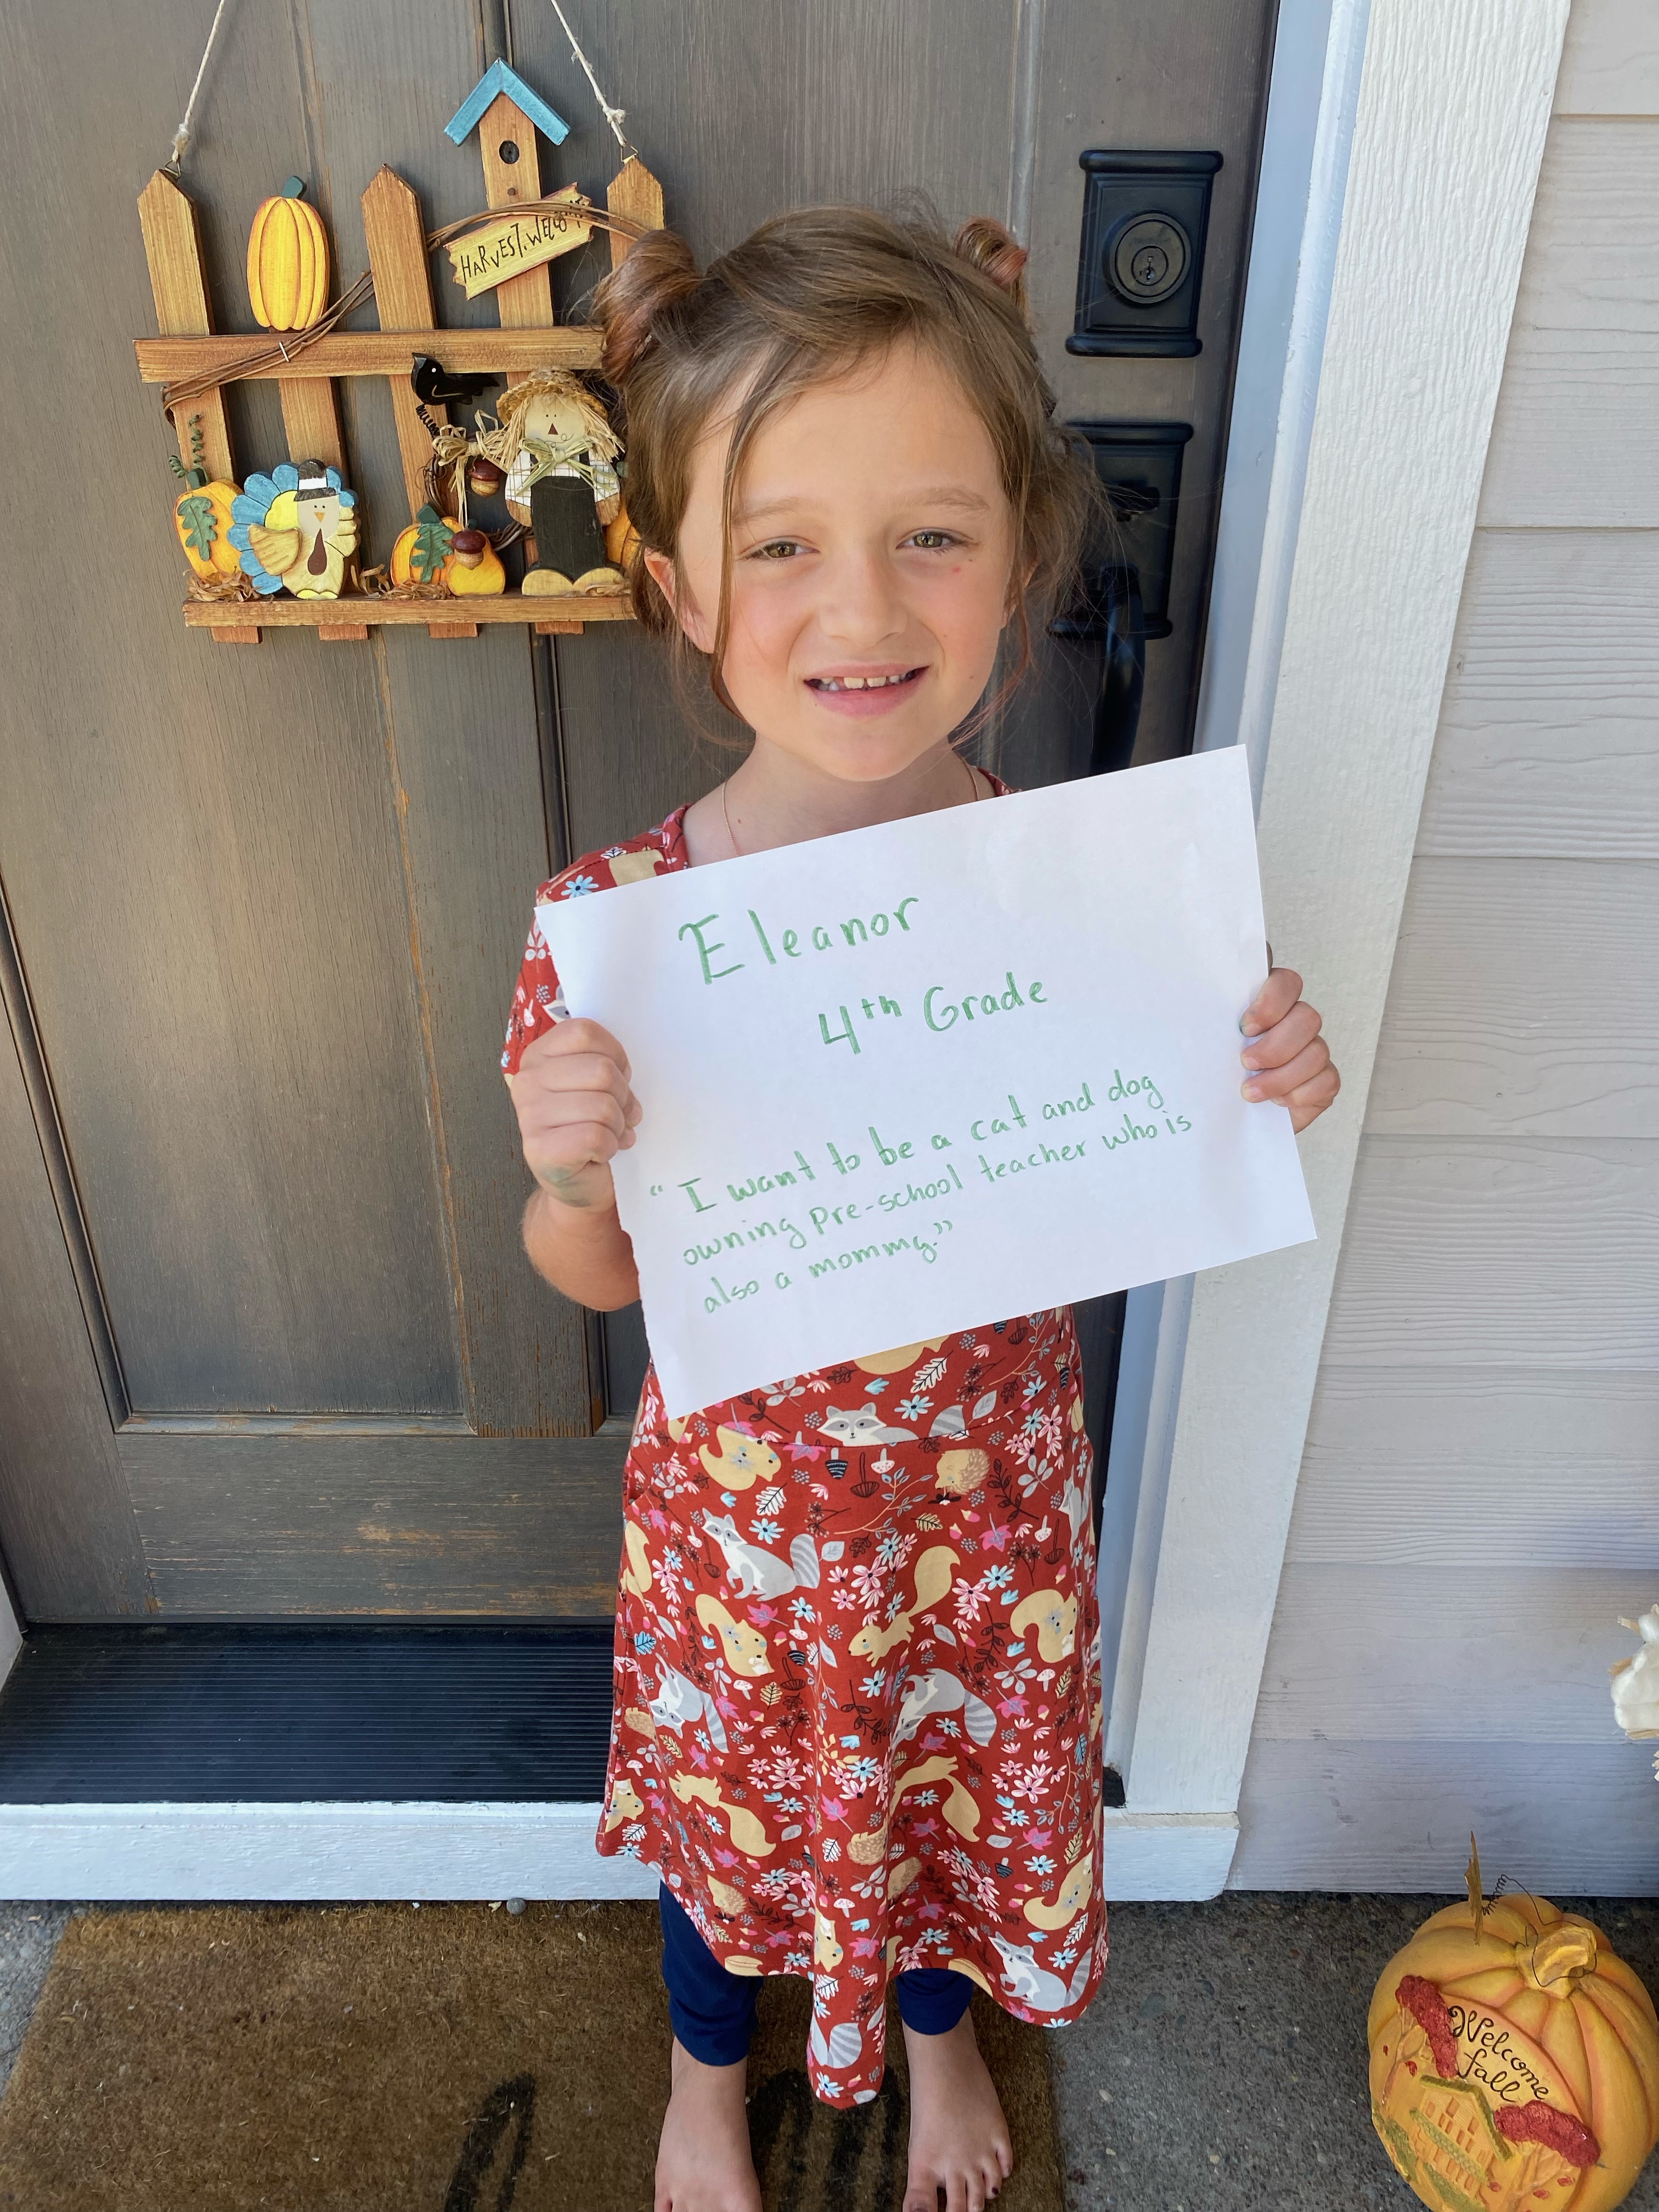 HARVEST WELCOME
Eleanor
4th Grade
“ I want to be a cat and dog
owning pre-school teacher who is
also a mommy.”
Welcome
fall